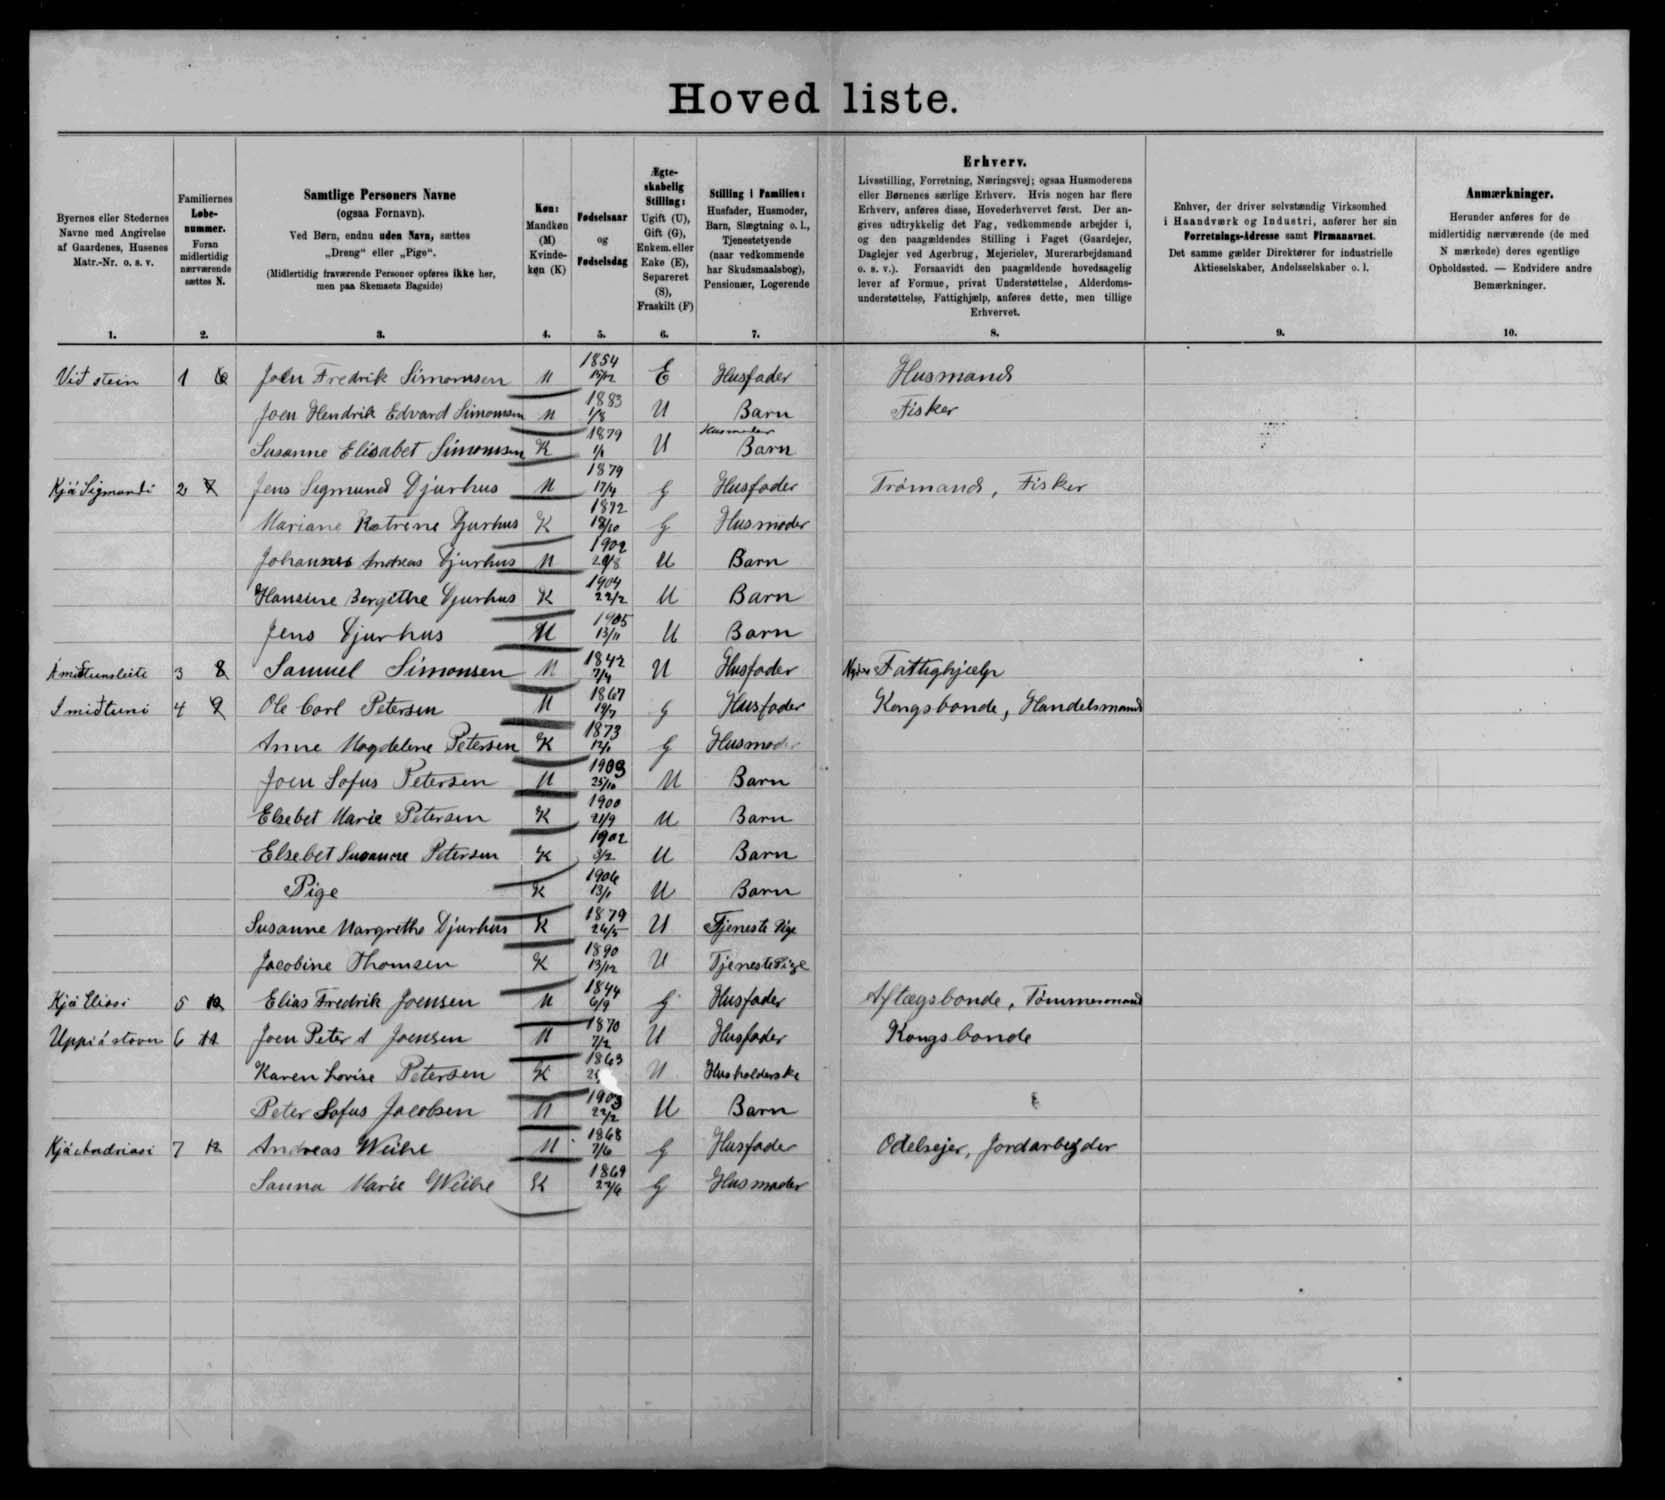 Hoved liste.
Byernes eller Stedernes Navne med Angivelse af Gaardenes, Husenes Matr.-Nr. o. s. v.
Familiernes Løbenummer. Foran midlertidig nærværende sættes N.
Samtlige Personers Navne
(ogsaa Fornavn).
Ved Børn, endnu uden Navn, sættes
„Dreng“ eller „Pige“.
(Midlertidig fraværende Personer opføres ikke her,
men paa Skemaets Bagside)
Køn: Mandkøn (M) Kvindekøn (K)
Fødselsaar og Fødselsdag
Ægteskabelig Stilling: Ugift (U), Gift (G), Enkem. eller Enke (E), Separeret (S), Fraskilt (F)
Stilling i Familien: Husfader, Husmoder, Barn, Slægtning o. l., Tjenestetyende (naar vedkommende har Skudsmaalsbog), Pensionær, Logerende
Erhverv.
Livsstilling, Forretning, Næringsvej; ogsaa Husmoderens
eller Børnenes særlige Erhverv. Hvis nogen har flere
Erhverv, anføres disse, Hovederhvervet først. Der an-
gives udtrykkelig det Fag, vedkommende arbejder i,
og den paagældendes Stilling i Faget (Gaardejer,
Daglejer ved Agerbrug, Mejerielev, Murerarbejdsmand
o. s. v.). Forsaavidt den paagældende hovedsagelig
lever af Formue, privat Understøttelse, Alderdoms-
understøttelse, Fattighjælp, anføres dette, men tillige
Erhvervet.
Enhver, der driver selvstændig Virksomhed
i Haandværk og Industri, anfører her sin
Forretnings-Adresse samt Firmanavnet.
Det samme gælder Direktører for industrielle
Aktieselskaber, Andelsselskaber o. l.
Anmærkninger.
Herunder anføres for de
midlertidig nærværende (de med
N mærkede) deres egentlige
Opholdssted. — Endvidere andre
Bemærkninger.
1. 2. 3. 4. 5. 6. 7. 8. 9. 10.
Við stein 1 6 Joen Fredrik Simonsen M 1854 15/12 E Husfader Husmand
Joen Hendrik Edvard Simonsen M 1883 1/8 U Barn Fisker
Susanne Elisabet Simonsen K 1879 U Husmoder Barn
Kjá Sigmundi 2 7 Jens Sigmund Djurhus M 1879 17/4 G Husfader Trømand, Fisker
Mariane Katrine Djurhus K 1872 18/10 G Husmoder
Johannes Andreas Djurhus M 1902 U Barn
Hansine Bergithe Djurhus K 1904 22/2 U Barn
Jens Djurhus M 1905 13/11 U Barn
Ámiðtunsleiti 3 8 Samuel Simonsen M 1842 7/4 U Husfader Nyder Fattighjælp
Í miðtuni 4 9 Ole Carl Petersen M 1867 G Husfader Kongsbonde, Handelsmand
Anne Magdelene Petersen K 1873 12/1 G Husmoder
Joen Sofus Petersen M 1903 25/10 U Barn
Elsebet Marie Petersen K 1900 21/9 U Barn
Elsebet Susanne Petersen K 1902 3/2 U Barn
Pige K 1906 13/1 U Barn
Susanne Margrethe Djurhus K 1879 26/5 U Tjeneste Pige
Jacobine Thomsen K 1890 13/12 U TjenestePige
Kjá Eliasi 5 10 Elias Fredrik Joensen M 1844 6/9 G Husfader Aftægsbonde, Tømmermand
Uppi á stovu 6 11 Joen Peter A Joensen M 1870 7/2 U Husfader Kongsbonde
Karen Lovise Petersen K 1863 U Husholderske
Peter Sofus Jacobsen M 1903 22/2 U Barn
Kjá Andriasi 7 12 Andreas Weihe M 1868 7/6 G Husfader Odelsejer, Jordarbejder
Sanna Marie Weihe K 1869 22/6 G Husmoder